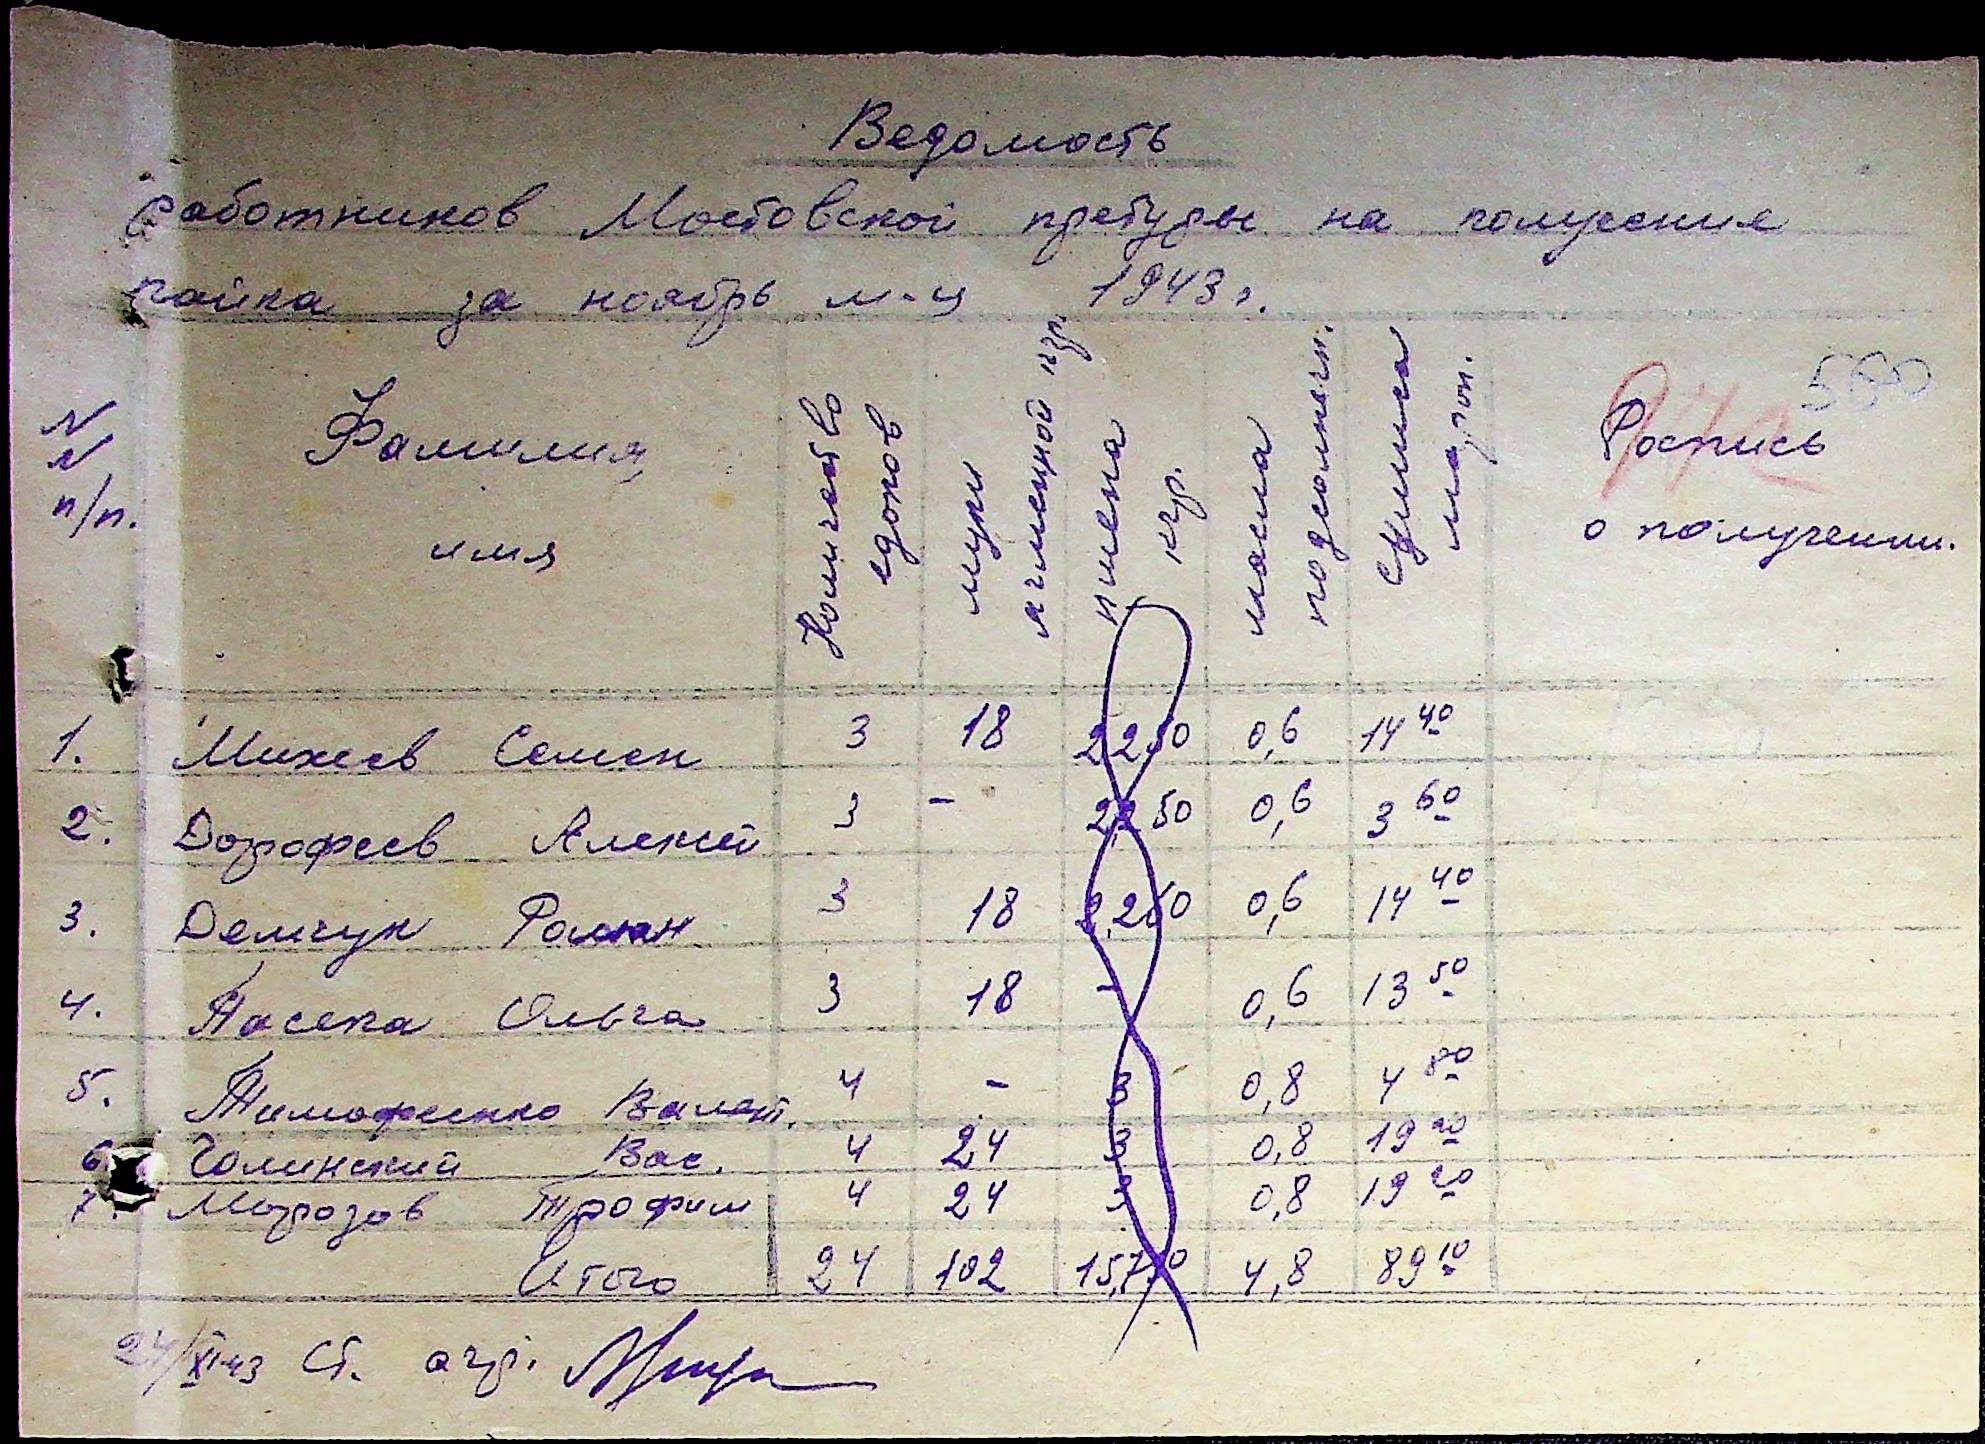 Ведомость
работников Мостовской претуры на получения
пайка за ноябрь м-ц 1943 г.
N N п/п. Фамилия, имя Количество едоков муки ячменной кгр. пшена кгр. масла подсолнечн. Сумма Роспись о получении.
560
1. Михеев Семен 3 18 2,250 0,6 14 40
2. Дорофеев Алексей 3 - 2,250 0,6 3 60
3. Демчук Роман 3 18 2,250 0,6 14 40
4. Пасека Ольга 3 18 - 0,6 13 50
5. Тимофеенко Валент. 4 - 3 0,8 4 80
6. Голинский Вас. 4 24 3 0,8 19 20
7. Морозов Трофим 4 24 3 0,8 19 20
Итого 24 102 15,750 4,8 89 10
24/XI 43 Ст. агр.